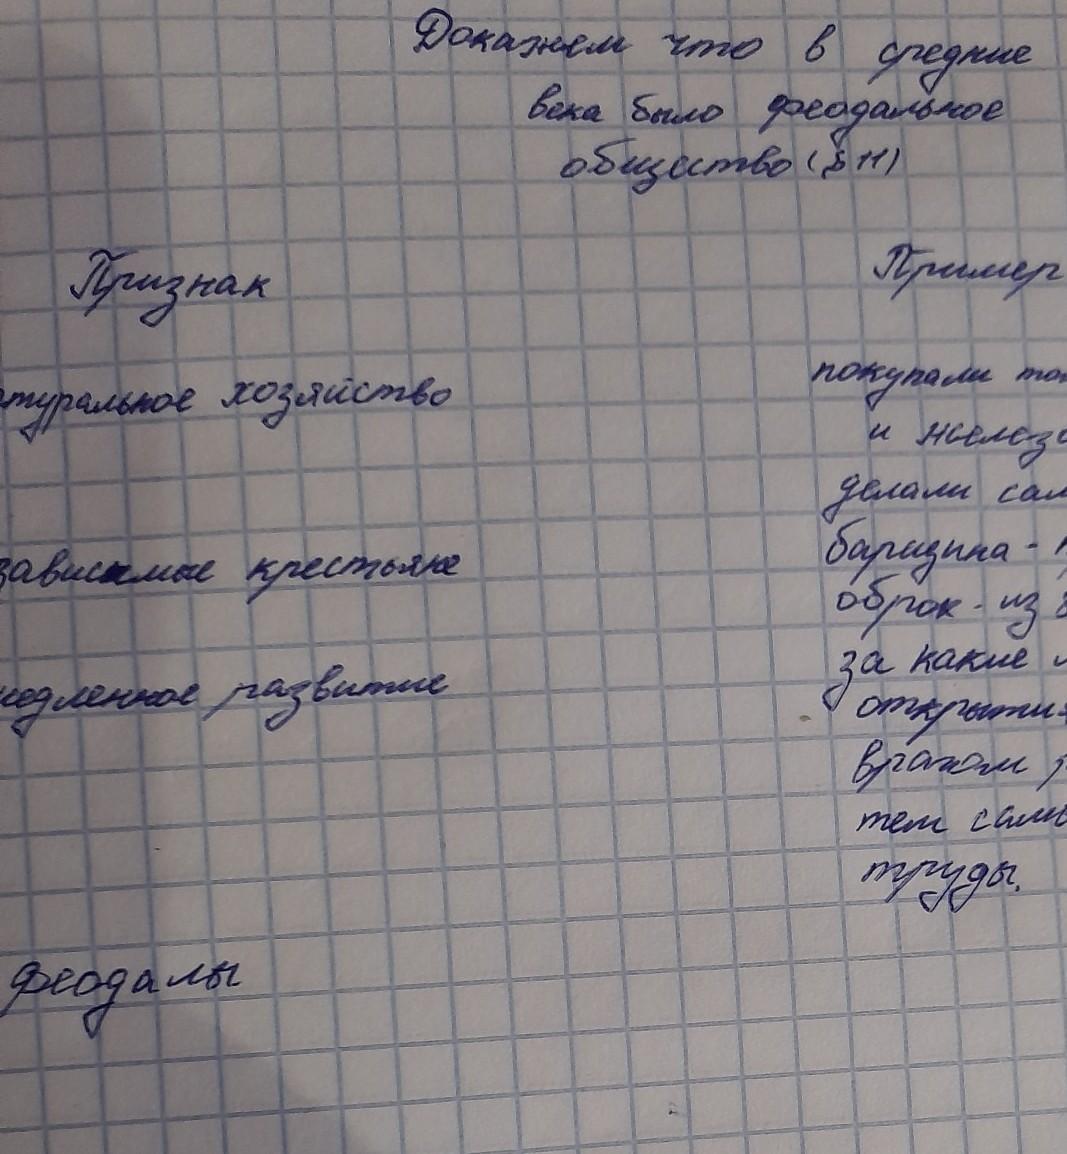 Докажем что в средние
века было феодальное
общество (§ 11)
Признак Пример
атуральное хозяйство покупали то
и желез
делали сам
зависимые крестьяне барщина -
оброк - из
за какие
медленное развитие открыти
врагом
тем сам
труды.
феодалы